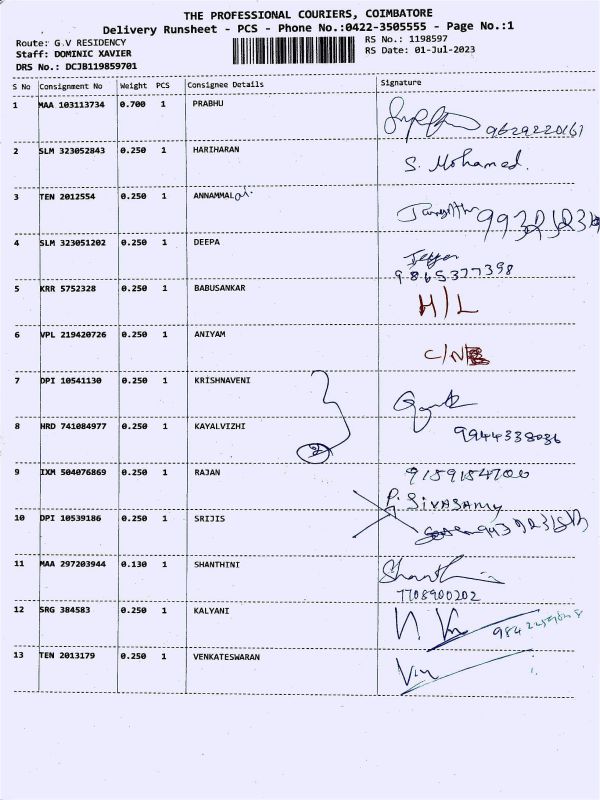 THE PROFESSIONAL COURIERS, COIMBATORE
Delivery Runsheet - PCS - Phone No.:0422-3505555 - Page No.:1
Route: G.V RESIDENCY RS No.: 1198597
Staff: DOMINIC XAVIER RS Date: 01-Jul-2023
DRS No.: DCJB119859701
S No Consignment No Weight PCS Consignee Details Signature
1 MAA 103113734 0.700 1 PRABHU
9629220161
2 SLM 323052843 0.250 1 HARIHARAN
S. Mohamed.
3 TEN 2012554 0.250 1 ANNAMMAL
4 SLM 323051202 0.250 1 DEEPA
9865377398
5 KRR 5752328 0.250 1 BABUSANKAR
H/L
6 VPL 219420726 0.250 1 ANIYAM
C/N
7 DPI 10541130 0.250 1 KRISHNAVENI
8 HRD 741084977 0.250 1 KAYALVIZHI
9944338036
2
9 IXM 504076869 0.250 1 RAJAN 9159154700
P. SIVASAMY
10 DPI 10539186 0.250 1 SRIJIS
11 MAA 297203944 0.130 1 SHANTHINI Shanthini
7708900202
12 SRG 384583 0.250 1 KALYANI
13 TEN 2013179 0.250 1 VENKATESWARAN